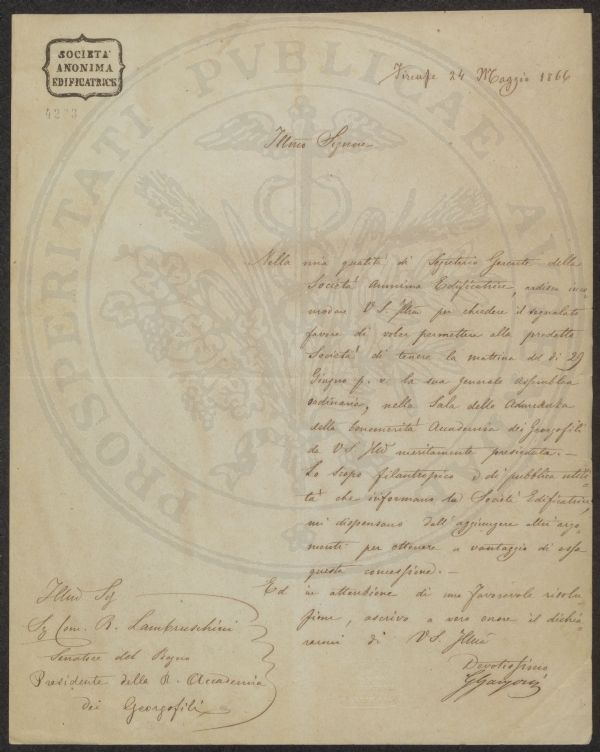 SOCIETÀ
ANONIMA
EDIFICATRICE
4283
Firenze 24 Maggio 1866
Illmo Signore
Nella mia qualità di Segretario Gerente della
Società Anonima Edificatrice, ardisco inco
modare V. S. Illma per chiedere il segnalato
favore di voler permettere alla predetta
Società di tenere la mattina del dì 29
Giugno p. v. la sua generale assemblea
ordinaria, nella Sala delle Adunanze
della benemerita Accademia dei Georgofili
da V S Illma meritamente presieduta. –
Lo scopo filantropico e di pubblica utili
tà che informano la Società Edificatrice,
mi dispensano dall'aggiungere altri argo
menti per ottenere a vantaggio di essa
questa concessione. –
Ed in attenzione di una favorevole risolu
zione, ascrivo a vero onore il dichia
rarmi di V S Illma
Devotissimo
Illmo Sig
Sig Com. R. Lambruschini
Senatore del Regno
Presidente della R. Accademia
dei Georgofili
PROSPERITATI PVBLICAE